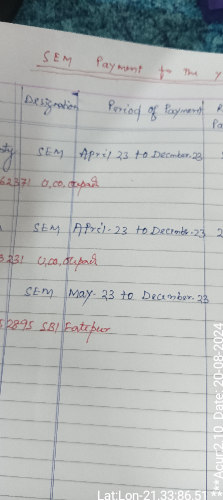 SEM Payment for the y
Designation Period of Payment R
Pa
ty SEM April 23 to December.23
62371 U,co,
SEM April-23 to December-23 2
3231 U,co,
SEM May-23 to December.23
52895 SBI Fatepur
Lat:Lon-21.33:86.5
Date: 20-08-2024